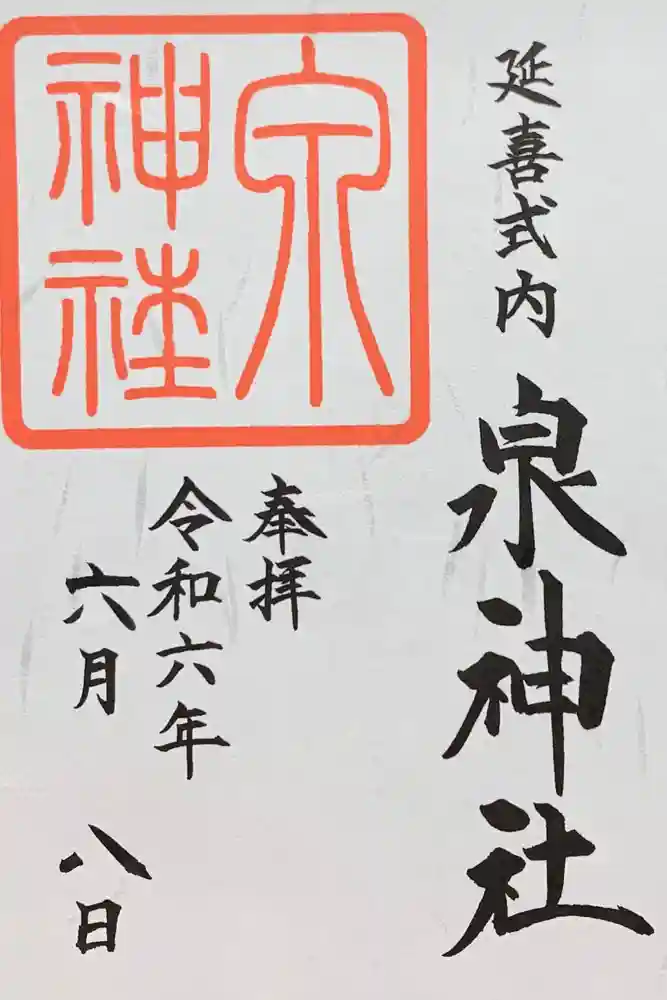 延喜式内 泉神社
奉拝
令和六年
六月 八日
泉
神社